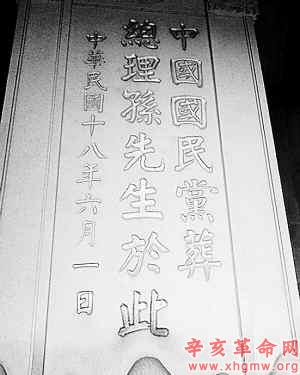 中國國民黨葬
總理孫先生於此
中華民國十八年六月一日
辛亥革命网
www.xhgmw.org